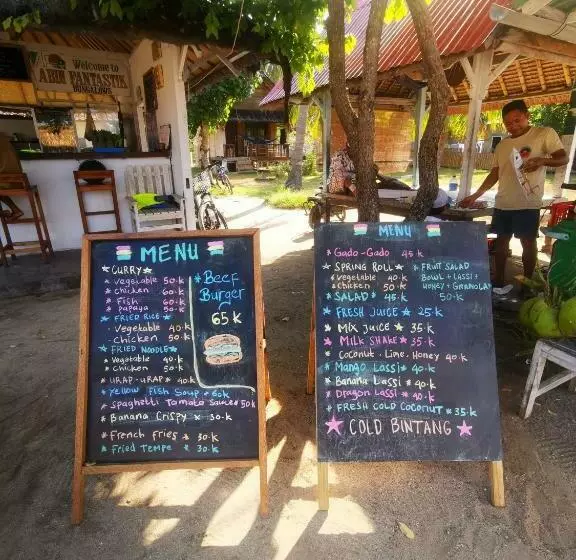 Welcome to
ABIN FANTASTIK
BUNGALOWS
MENU
★ CURRY ★
* Vegetable 50.k
* chicken 60.k
* Fish 60.k
* papaya 50.k
★ FRIED RICE ★
Vegetable 40.k
* chicken 50.k
★ FRIED NOODLE ★
* Vegetable 40.k
* Chicken 50.k
* URAP-URAP * 40.k
* Yellow Fish Soup * 60k
* Spaghetti Tomato Sauce * 50.k
* Banana Crispy * 30.k
* French Fries * 30.k
* Fried Tempe * 30.k
* Beef
Burger
65 K
MENU
* Gado-Gado 45 k
★ SPRING ROLL ★
* Vegetable 40.k
* chicken 50.k
★ SALAD ★ 45 k
★ FRESH JUICE ★ 25 k
★ MIX JUICE ★ 35 k
★ MILK SHAKE ★ 35 k
* Coconut. Lime. Honey 40.k
* Mango Lassi * 40.k
* Banana Lassi * 40.k
* Dragon Lassi * 40.k
* FRESH COLD COCONUT * 35k
★ COLD BINTANG ★
* FRUIT SALAD
BOWL + LASSI +
HONEY + GRANOLA
50.k